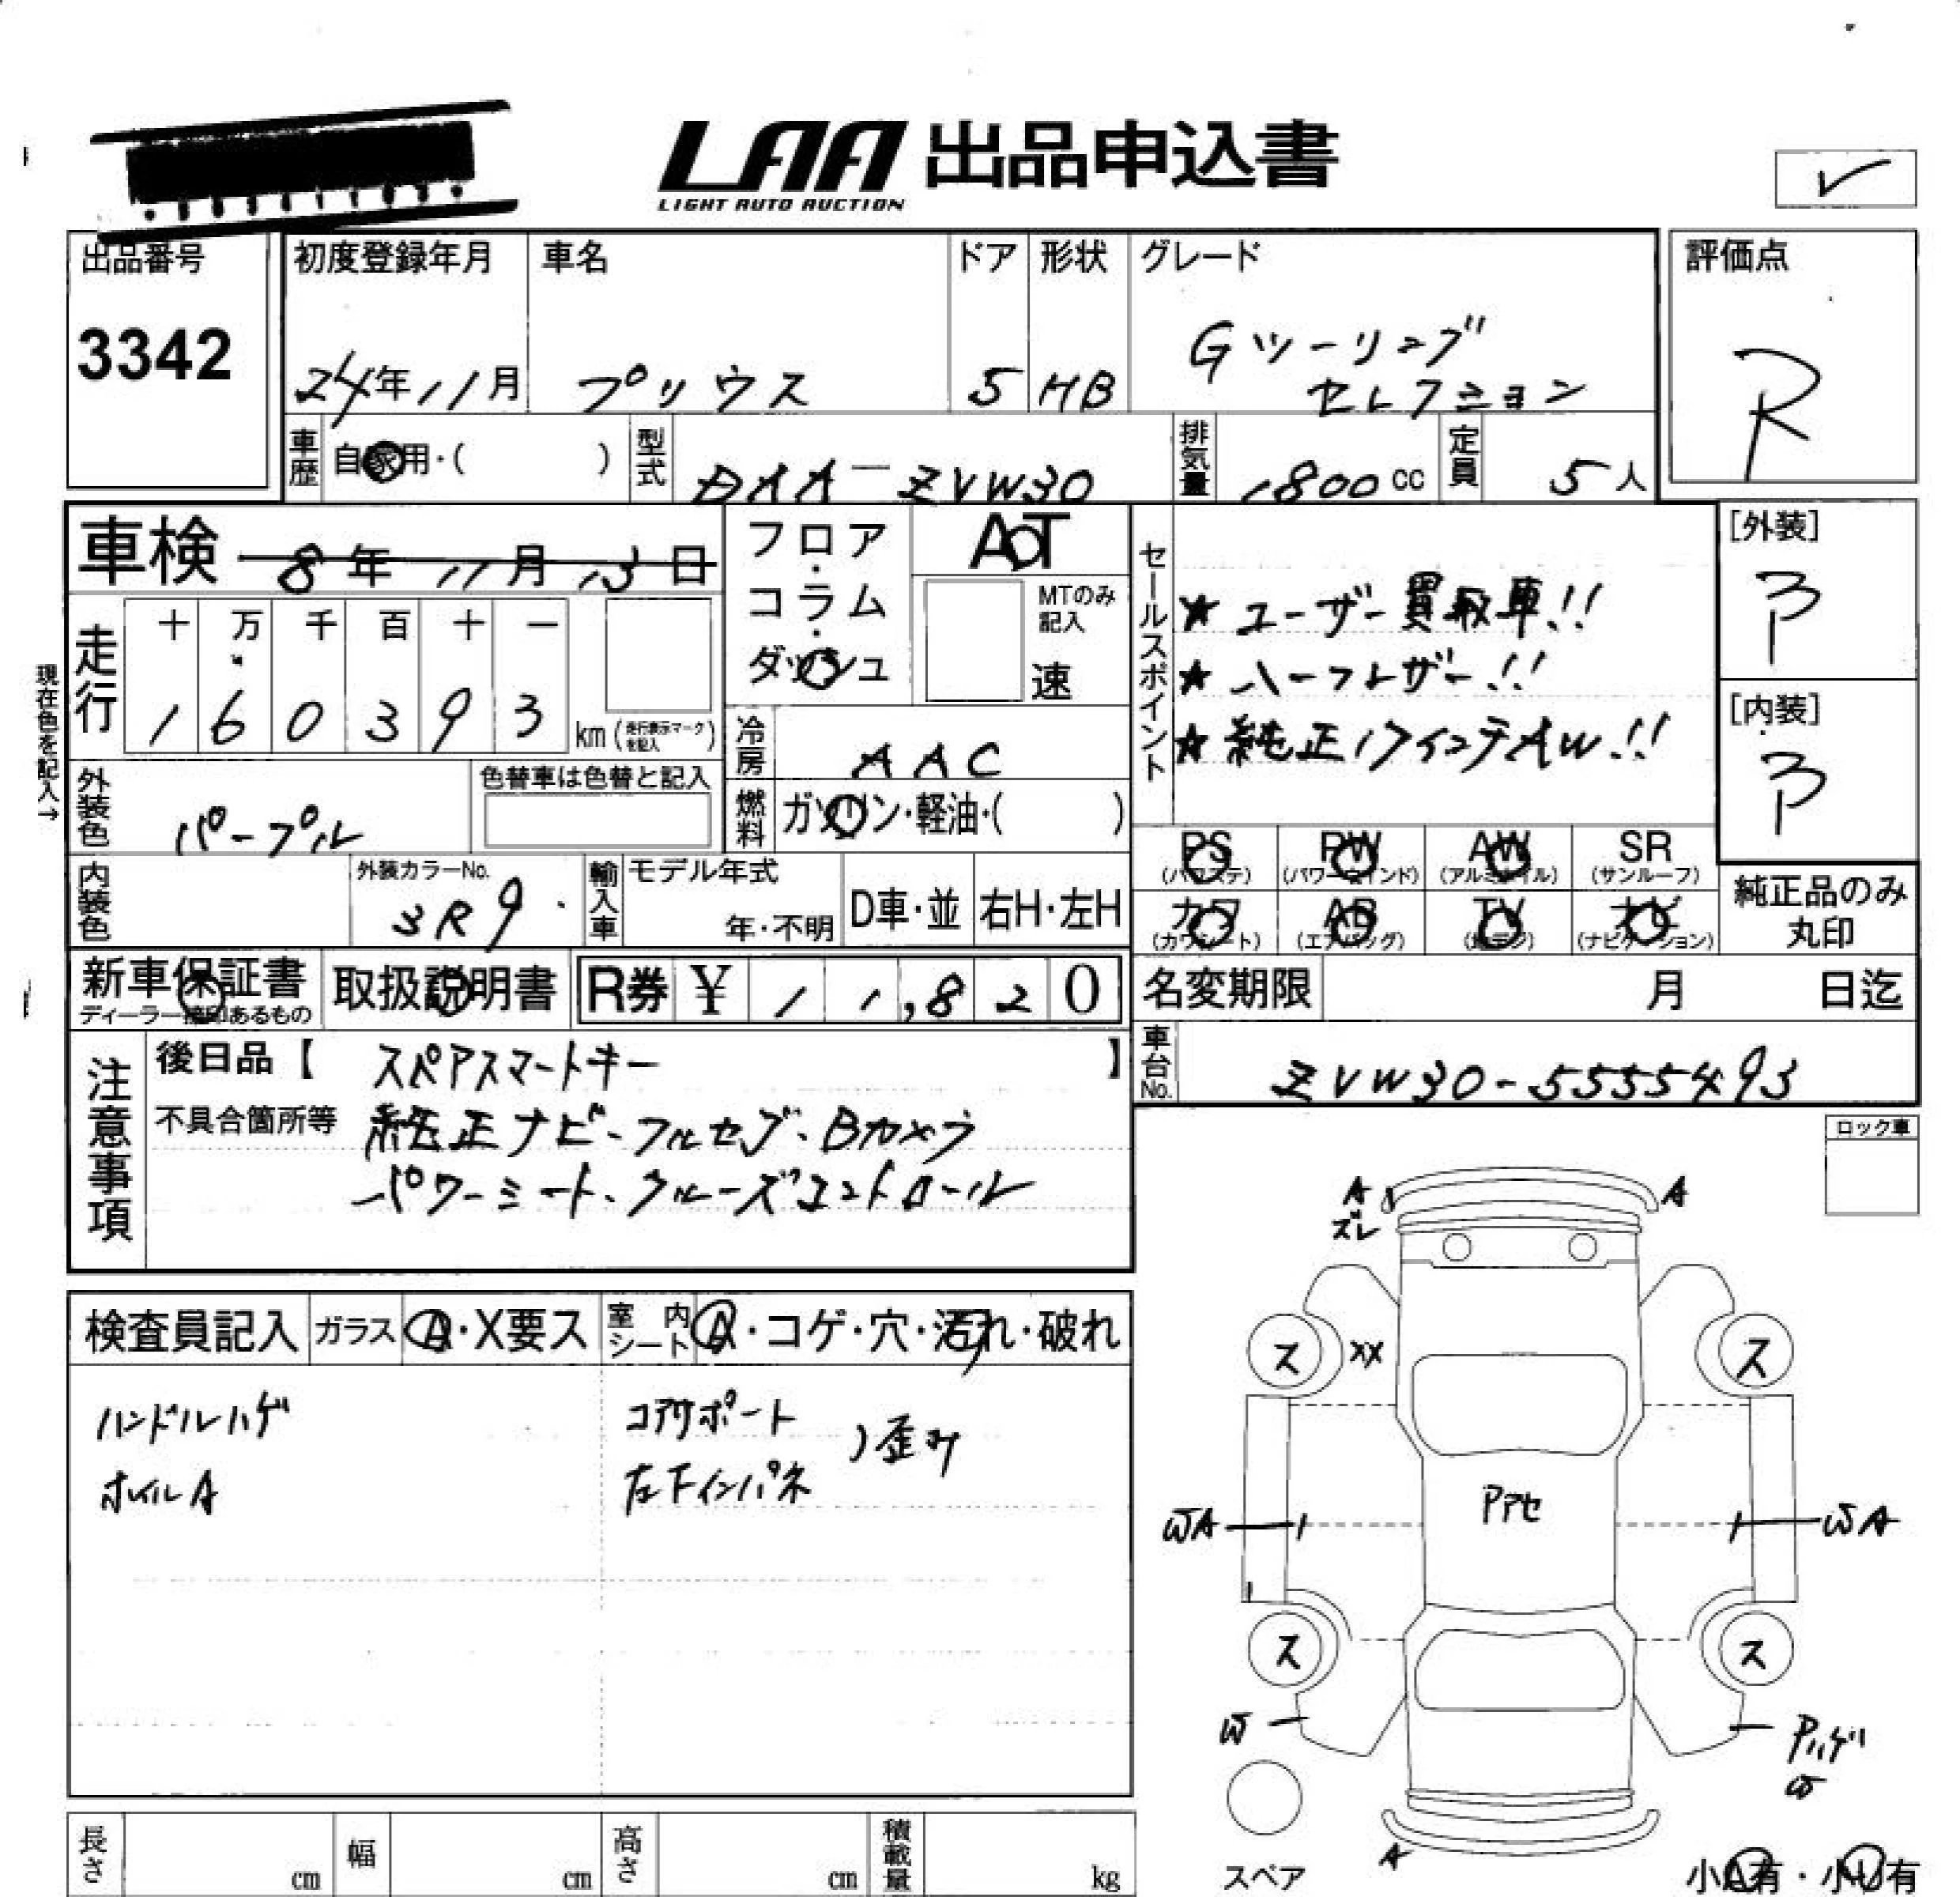 LAA 出品申込書
LIGHT AUTO AUCTION
✓
出品番号 3342
初度登録年月 24年11月
車名 プリウス
ドア 5
形状 HB
グレード Gツーリング
セレクション
評価点 R
車歴 自家用・( )
型式 DAA-ZVW30
排気量 1800cc
定員 5人
車検 8年11月13日
フロア・コラム・ダッシュ
AT
MTのみ記入
速
走行 十万千百十一
160393 km (走行表示マークを記入)
現在色を記入→
冷房 AAC
燃料 ガソリン・軽油・( )
外装色 パープル
色替車は色替と記入
内装色
外装カラーNo. 3R9
輸入車 モデル年式 年・不明
D車・並
右H・左H
セールスポイント
★ユーザー買取車!!
★ハーフレザー!!
★純正17インチAW!!
[外装] 3
[内装] 3
PS (パワステ)
PW (パワーウインド)
AW (アルミホイル)
SR (サンルーフ)
カワ (カワシート)
AB (エアバッグ)
TV (地デジ)
ナビ (ナビゲーション)
純正品のみ丸印
新車保証書
ディーラー捺印あるもの
取扱説明書
R券 ¥11,820
名変期限 月 日迄
車台No. ZVW30-5555493
注意事項
後日品【 スペアスマートキー 】
不具合箇所等 純正ナビ・フルセグ・Bカメラ
パワーシート、クルーズコントロール
ロック車
検査員記入
ガラス A・X要ス
室内シート A・コゲ・穴・汚れ・破れ
ハンドルハゲ
ホイルA
コアサポート
左下インパネ
)歪み
A
ズレ
A
ス
XX
ス
Pアセ
WA
WA
ス
ス
W
Pハゲ
W
A
スペア
小A有・小U有
長さ cm
幅 cm
高さ cm
積載量 kg